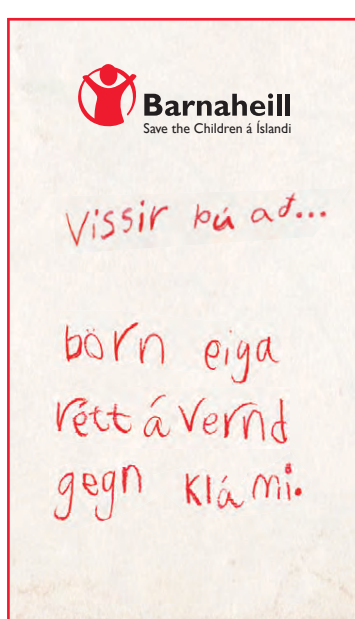 Barnaheill
Save the Children á Íslandi
Vissir þú að...
börn eiga
rétt á vernd
gegn klámi.